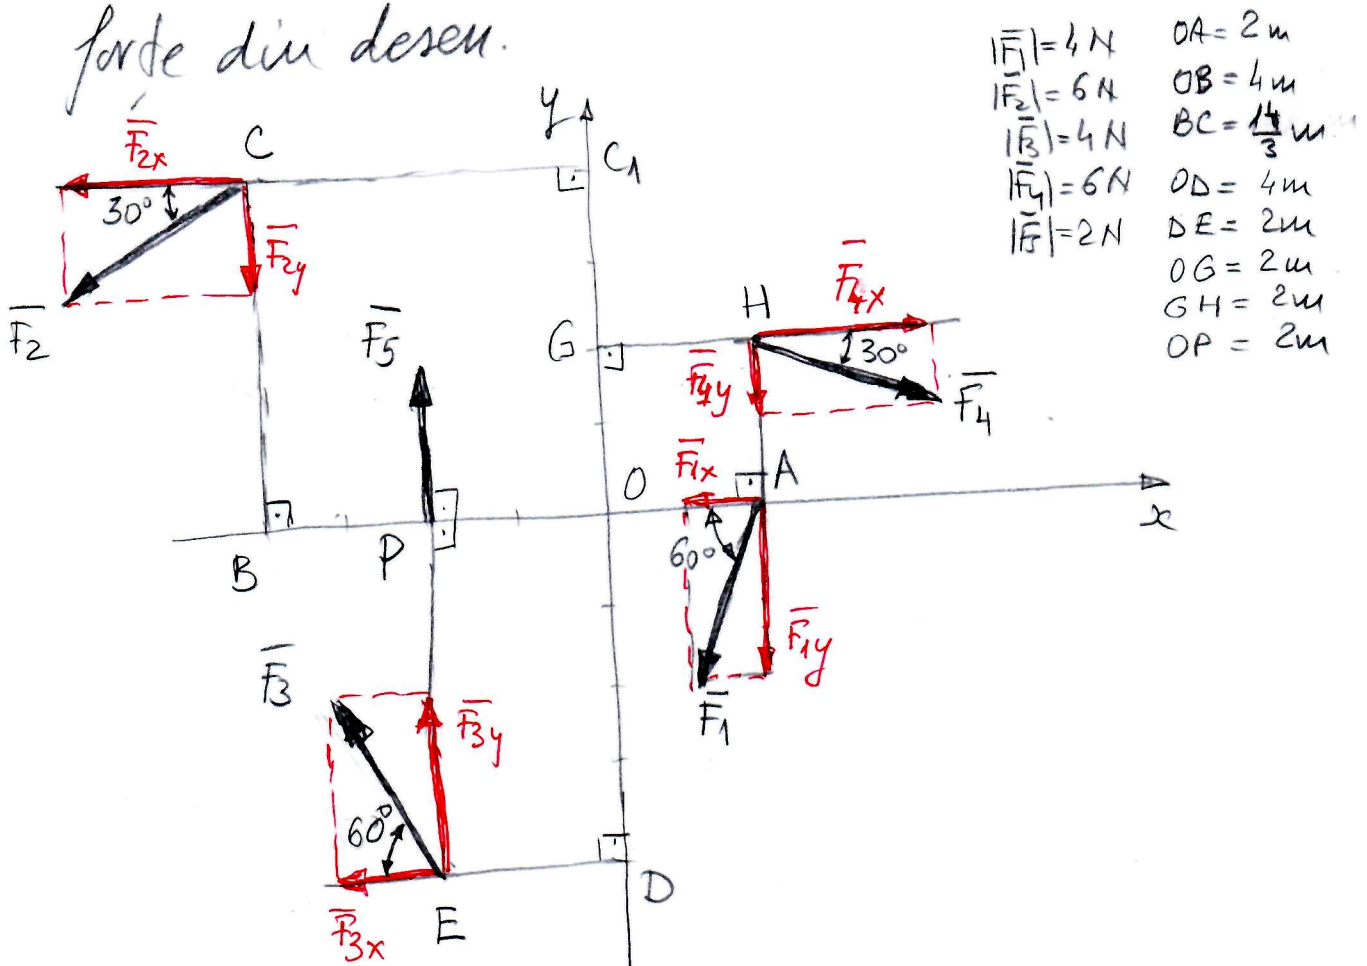 forțe din desen.
|F̅1| = 4 N
|F̅2| = 6 N
|F̅3| = 4 N
|F̅4| = 6 N
|F̅5| = 2 N
OA = 2 m
OB = 4 m
BC = 14/3 m
OD = 4 m
DE = 2 m
OG = 2 m
GH = 2 m
OP = 2 m
F̅2x
C
y
C1
30°
F̅2y
F̅2
F̅5
G
H
F̅4x
30°
F̅4y
F̅4
F̅1x
O
A
x
B
P
60°
F̅1y
F̅1
F̅3
F̅3y
60°
D
F̅3x
E